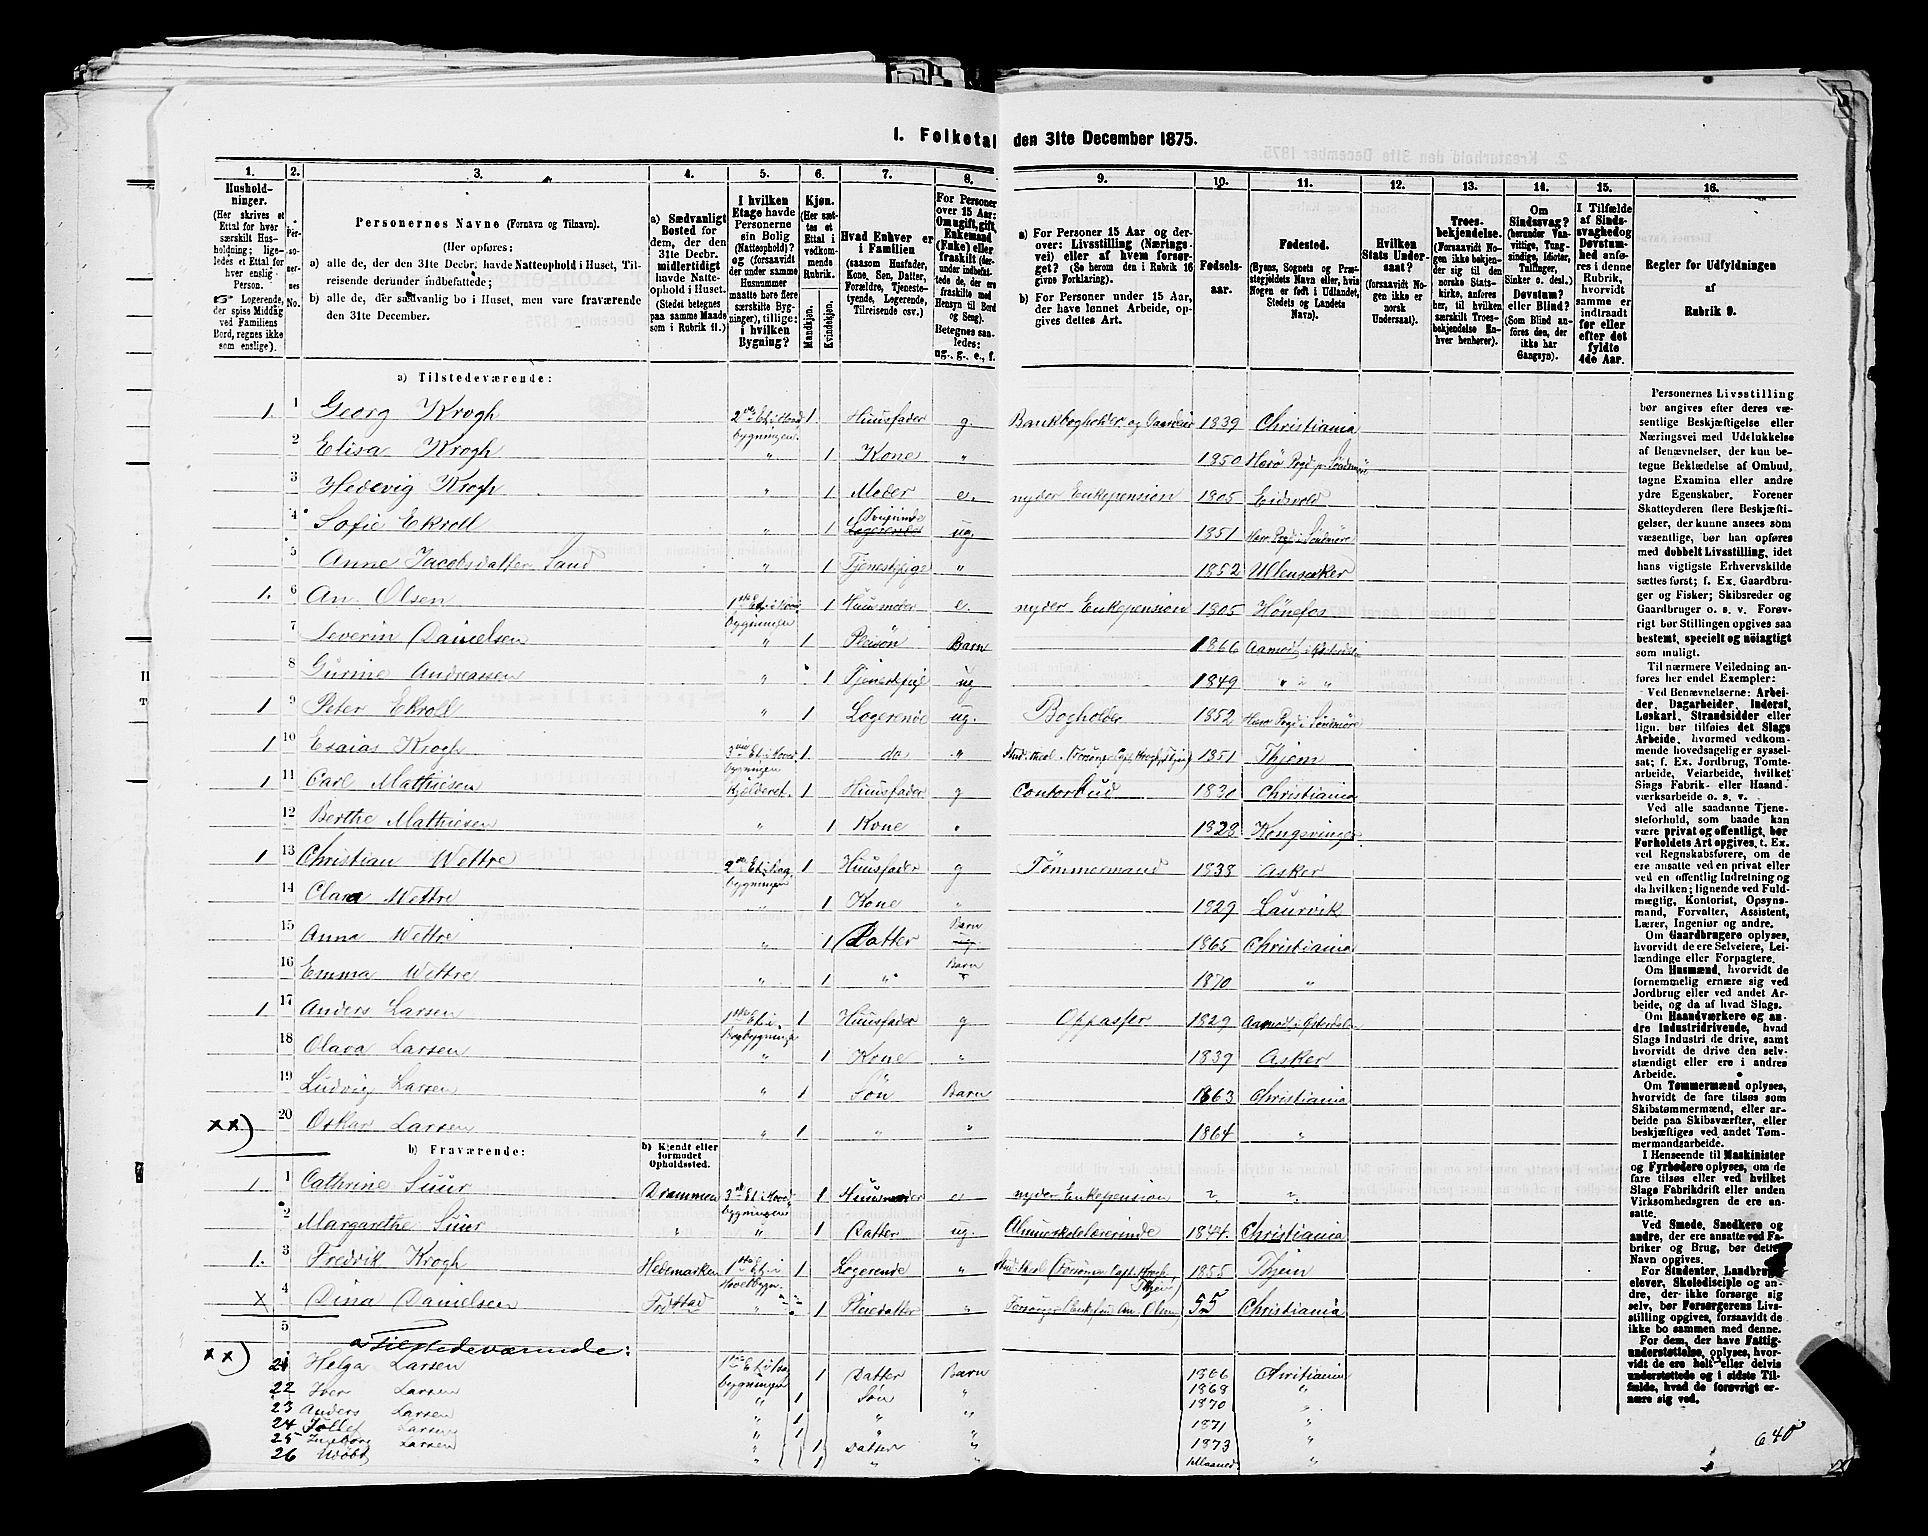 I. Folketal den 31te December 1875.
1. 2. 3. 4. 5. 6. 7. 8. 9. 10. 11. 12. 13. 14. 15. 16.
Husholdninger.
(Her skrives et Ettal for hver særskilt Husholdning; ligeledes et Ettal for hver enslig Person.
☞ Logerende, der spise Middag ved Familiens Bord, regnes ikke som enslige).
Personernes No.
Personernes Navne (Fornavn og Tilnavn).
(Her opføres:
a) alle de, der den 31te Decbr. havde Natteophold i Huset, Tilreisende derunder indbefattede;
b) alle de, der sædvanlig bo i Huset, men vare fraværende den 31te December.
a) Sædvanligt Bosted for dem, der den 31te Decbr. midlertidigt havde Natteophold i Huset.
(Stedet betegnes paa samme Maade som i Rubrik 11.)
I hvilken Etage havde Personerne sin Bolig (Natteophold)? og (forsaavidt der under samme Husnummer maatte høre flere særskilte Bygninger), tillige: i hvilken Bygning?
Kjøn.
(Her sættes et Ettal i vedkommende Rubrik.
Mandkjøn.
Kvindekjøn.
Hvad Enhver er i Familien
(saasom Husfader, Kone, Søn, Datter, Forældre, Tjenestetyende, Logerende, Tilreisende osv.)
For Personer over 15 Aar: Om ugift, gift, Enkemand (Enke) eller fraskilt (derunder indbefattede de, der ere fraskilte med Hensyn til Bord og Seng).
Betegnes saaledes: ug., g., e., f.
a) For Personer 15 Aar og derover: Livsstilling (Næringsvei) eller af hvem forsørget? (Se herom den i Rubrik 16 givne Forklaring).
b) For Personer under 15 Aar, der have lønnet Arbeide, opgives dettes Art.
Fødselsaar.
Fødested.
(Byens, Sognets og Præstegjeldets Navn eller, hvis Nogen er født i Udlandet, Stedets og Landets Navn).
Hvilken Stats Undersaat?
(forsaavidt Nogen ikke er norsk Undersaat).
Troesbekjendelse.
(Forsaavidt Nogen ikke bekjender sig til den norske Statskirke, anføres her, til hvilken særskilt Troesbekjendelse Enhver henhører).
Om Sindssvag? (herunder Vanvittige, Tungsindige, Idioter, Tullinger, Sinker o. desl.) Døvstum? eller Blind?
(Som Blind anføres den, der ikke har Gangsyn).
I Tilfælde af Sindssvaghed og Døvstumhed anføres i denne Rubrik, hvorvidt samme er indtraadt før eller efter det fyldte 4de Aar.
Regler for Udfyldningen
af
Rubrik 9.
a) Tilstedeværende:
1. 1 Georg Krogh 2den Et i Hovedbygningen. 1 Huusfader g. Bankbogholder og Gaardeier 1839 Christiania
2 Elisa Krogh " 1 Kone " 1850 Herö Pregd p. Söndmöre
3 Hedevig Krogh " 1 Moder e. nyder Enkepension 1805 Eidsvold
4 Sofie Ekroll " 1 Logerende ug. 1851 Herö Pregd i Söndmöre
5 Anne Jacobsdatter Sand " 1 Tjenestpige " 1852 Ullensaker
1. 6 An. Olsen 1ste Et i Hovedbygningen 1 Huusmoder e. nyder Enkepension 1805 Hönefos
7 Severin Danielsen " 1 Pleisön Barn 1866 Aamodt i Österdalen
8 Gurine Andreassen " 1 Tjenestpige ug 1849 " " "
1 9 Peter Ekroll " 1 Logerende ug. Bogholder 1852 Herö Pregd i Söndmöre
1 10 Esaias Krogh 3die Et i Hovedbygningen 1 do " Stud. theol. (Forsörger Capt. Krogh, Thjem) 1851 Thjem
1 11 Carl Mathiesen Kjelderet. 1 Huusfader g Contorbud 1830 Christiania
12 Berthe Mathiesen " 1 Kone " 1828 Kongsvinger
1 13 Christian Wettre 2den Et i Bagbygningen 1 Huusfader g Tömmermand 1838 Asker
14 Clara Wettre " 1 Kone " 1829 Laurvik
15 Anna Wettre " 1 Datter Barn 1865 Christiania
16 Emma Wettre " 1 " Barn 1870 "
1 17 Anders Larsen 1ste Et i Bagbygningen 1 Huusfader g Oppasser 1829 Aamodt i Österdalen
18 Olava Larsen " 1 Kone " 1839 Asker
19 Ludvig Larsen " 1 Sön Barn 1863 Christiania
xx) 20 Oskar Larsen " 1 " " 1864 "
b) Fraværende:
b) Kjendt eller formodet Opholdssted.
1 1 Cathrine Suur Drammen 3die Et i Hovedbygningen 1 Huusmoder e nyder Enkepension ? ?
2 Margarethe Suur " " 1 Datter ug. Almueskolelærerinde 1844. Christiania
1. 3 Fredrik Krogh Hedemarken 1ste Et i Hovedbygn. 1 Logerende " Stud. theol (Forsörger Capt. Krogh Thjem) 1855 Thjem
x 4 Dina Danielsen " 1 Pleiedatter " Forsörger (Enkefru An. Olsen) 55 Christiania
5
a Tilstedeværende:
xx) 21 Helga Larsen 1ste Et i Bagbygningen 1 Datter Barn 1866 Christiania
22 Iver Larsen " 1 Sön " 1868 "
23 Anders Larsen " 1 " " 1870 "
24 Tollef Larsen " 1 " 1871 "
25 Ingeborg Larsen " 1 Datter " 1873 "
26 Udöbt " 1 " " "
Personernes Livsstilling bør angives efter deres væsentlige Beskjæftigelse eller Næringsvei med Udelukkelse af Benævnelser, der kun betegne Beklædelse af Ombud, tagne Examina eller andre ydre Egenskaber. Forener Skatteyderen flere Beskjæftigelser, der kunne ansees som væsentlige, bør han opføres med dobbelt Livsstilling, idet hans vigtigste Erhvervskilde sættes først; f. Ex. Gaardbruger og Fisker; Skibsreder og Gaardbruger o. s. v. Forøvrigt bør Stillingen opgives saa bestemt, specielt og nøiagtigt som muligt.
Til nærmere Veiledning anføres her endel Exempler:
Ved Benævnelserne: Arbeider, Dagarbeider, Inderst, Løskarl, Strandsidder eller lign. bør tilføies det Slags Arbeide, hvormed vedkommende hovedsagelig er sysselsat; f. Ex. Jordbrug, Tomtearbeide, Veiarbeide, hvilket Slags Fabrik- eller Haandværksarbeide o. s. v.
Ved alle saadanne Tjenesteforhold, som baade kan være privat og offentligt, bør Forholdets Art opgives, t. Ex. ved Regnskabsførere, om de ere ansatte ved en privat eller ved en offentlig Indretning og da hvilken; lignende ved Fuldmægtig, Kontorist, Opsynsmand, Forvalter, Assistent, Lærer, Ingeniør og andre.
Om Gaardbrugere oplyses, hvorvidt de ere Selveiere, Leilændinge eller Forpagtere.
Om Husmænd, hvorvidt de fornemmelig ernære sig ved Jordbrug eller ved andet Arbeide, og da af hvad Slags.
Om Haandværkere og andre Industridrivende, hvad Slags Industri de drive, samt hvorvidt de drive den selvstændigt eller ere i andres Arbeide.
Om Tømmermænd oplyses, hvorvidt de fare tilsøs som Skibstømmermænd, eller arbeide paa Skibsværfter, eller beskjæftiges ved andet Tømmermandsarbeide.
I Henseende til Maskinister og Fyrbødere oplyses, om de fare tilsøs eller ved hvilket Slags Fabrikdrift eller anden Virksomhedsgren de ere ansatte.
Ved Smede, Snedkere og andre, der ere ansatte ved Fabriker og Brug, bør dettes Navn opgives.
For Studenter, Landbrugselever, Skoledisciple og andre, der ikke forsørge sig selv, bør Forsørgerens Livsstilling opgives, forsaavidt de ikke bo sammen med denne.
For dem, der have Fattigunderstøttelse, oplyses, hvorvidt de ere helt eller delvis understøttede og i sidste Tilfælde, hvad de forøvrigt ernære sig ved.
640